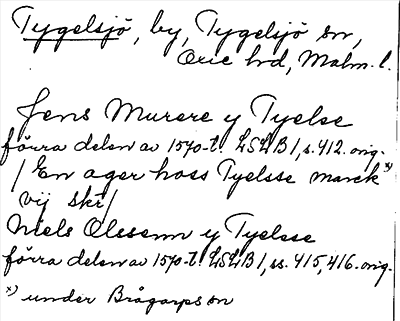 Tygelsjö, by, Tygelsjö sn,
Oxie hd, Malm. l.
Jens Murere y Tyelse
förra delen av 1570-t. LSLB 1, s. 412. orig.
/ En ager hoss Tyelsse marck x)
vij skr/
Niels Olssenn y Tyelsse
förra delen av 1570-t. LSLB 1, ss. 415, 416. orig.
x) under Brågarps sn